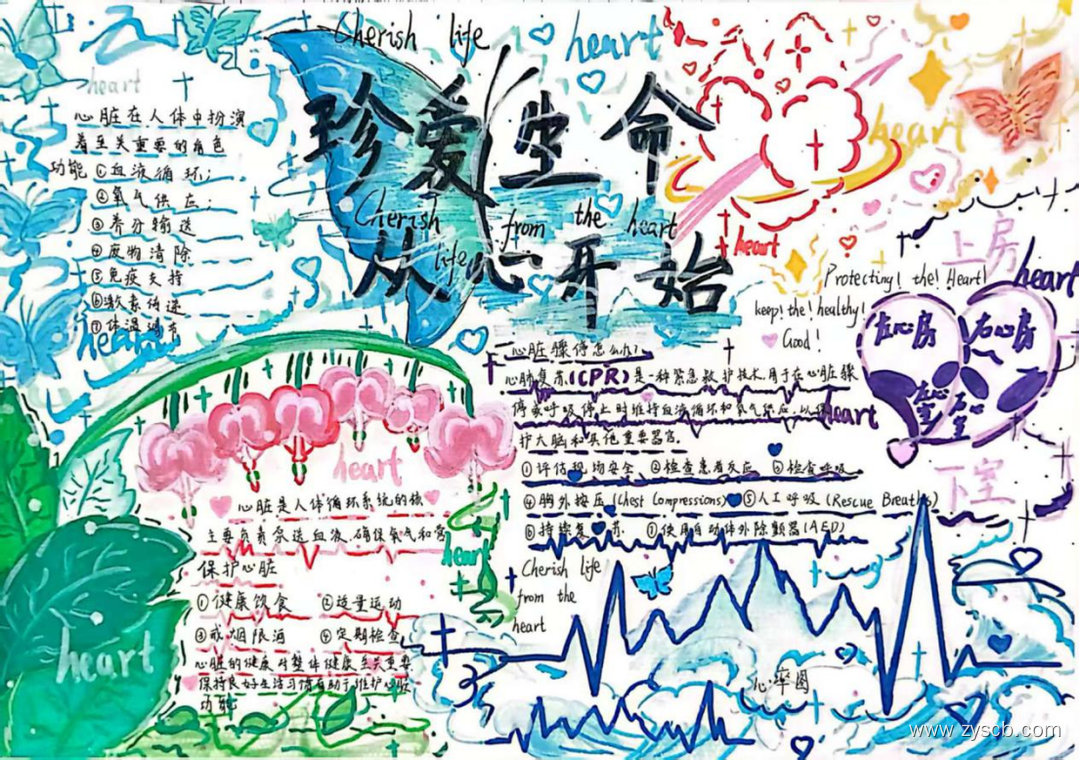 Cherish life
heart
珍爱生命
Cherish life from the heart
从心开始
heart
心脏在人体中扮演
着至关重要的角色
功能①血液循环;
②氧气供应;
③养分输送
④废物清除
⑤免疫支持
⑥激素传递
⑦体温调节
heart
heart
heart
heart
上房
Protecting! the! Heart!
heart
keep! the! healthy!
Good!
左心房
右心房
左心室
右心室
下室
心脏骤停怎么办?
心肺复苏(CPR)是一种紧急救护技术,用于在心脏骤
停或呼吸停止时维持血液循环和氧气供应,以保
heart
护大脑和其他重要器官。
①评估现场安全 ②检查患者反应 ③检查呼吸
④胸外按压(Chest Compressions) ⑤人工呼吸(Rescue Breaths)
⑥持续复苏 ⑦使用自动体外除颤器(AED)
heart
心脏是人体循环系统的核
主要负责泵送血液,确保氧气和营
保护心脏
①健康饮食 ②适量运动
③戒烟限酒 ④定期检查
心脏的健康对整体健康至关重要,
保持良好生活习惯有助于维护心脏
功能
heart
heart
Cherish life
from the
heart
心率图
www.zyscb.com